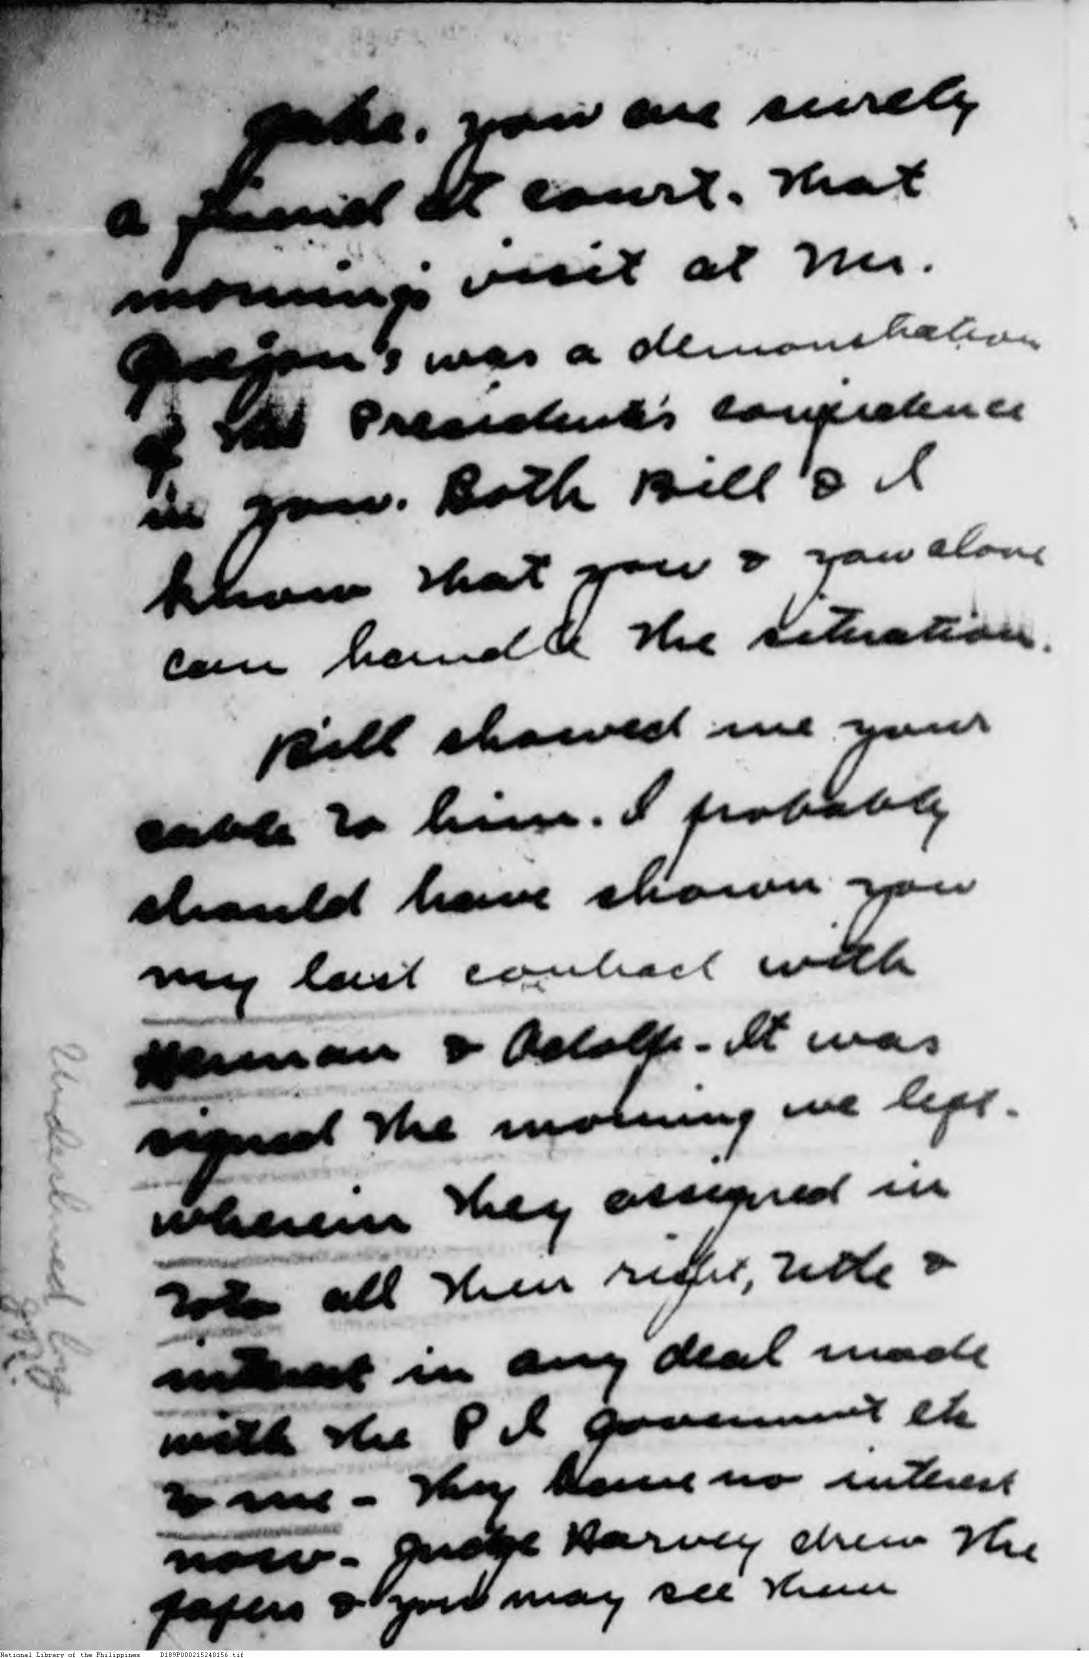 Jake. you are surely
a friend at court. That
morning's visit at Mr.
Quezon's was a demonstration
of the President's confidence
in you. Both Bill & I
know that you & you alone
can handle the situation.
Bill showed me your
cable to him. I probably
should have shown you
my last contract with
Herman & Adolf - It was
signed the morning we left.
wherein they assigned in
toto all their right, title &
interest in any deal made
with the P I government etc
to me - They have no interest
now - Judge Harvey drew the
papers & you may see them
Underlined by
National Library of the Philippines D189P000215240156.tif